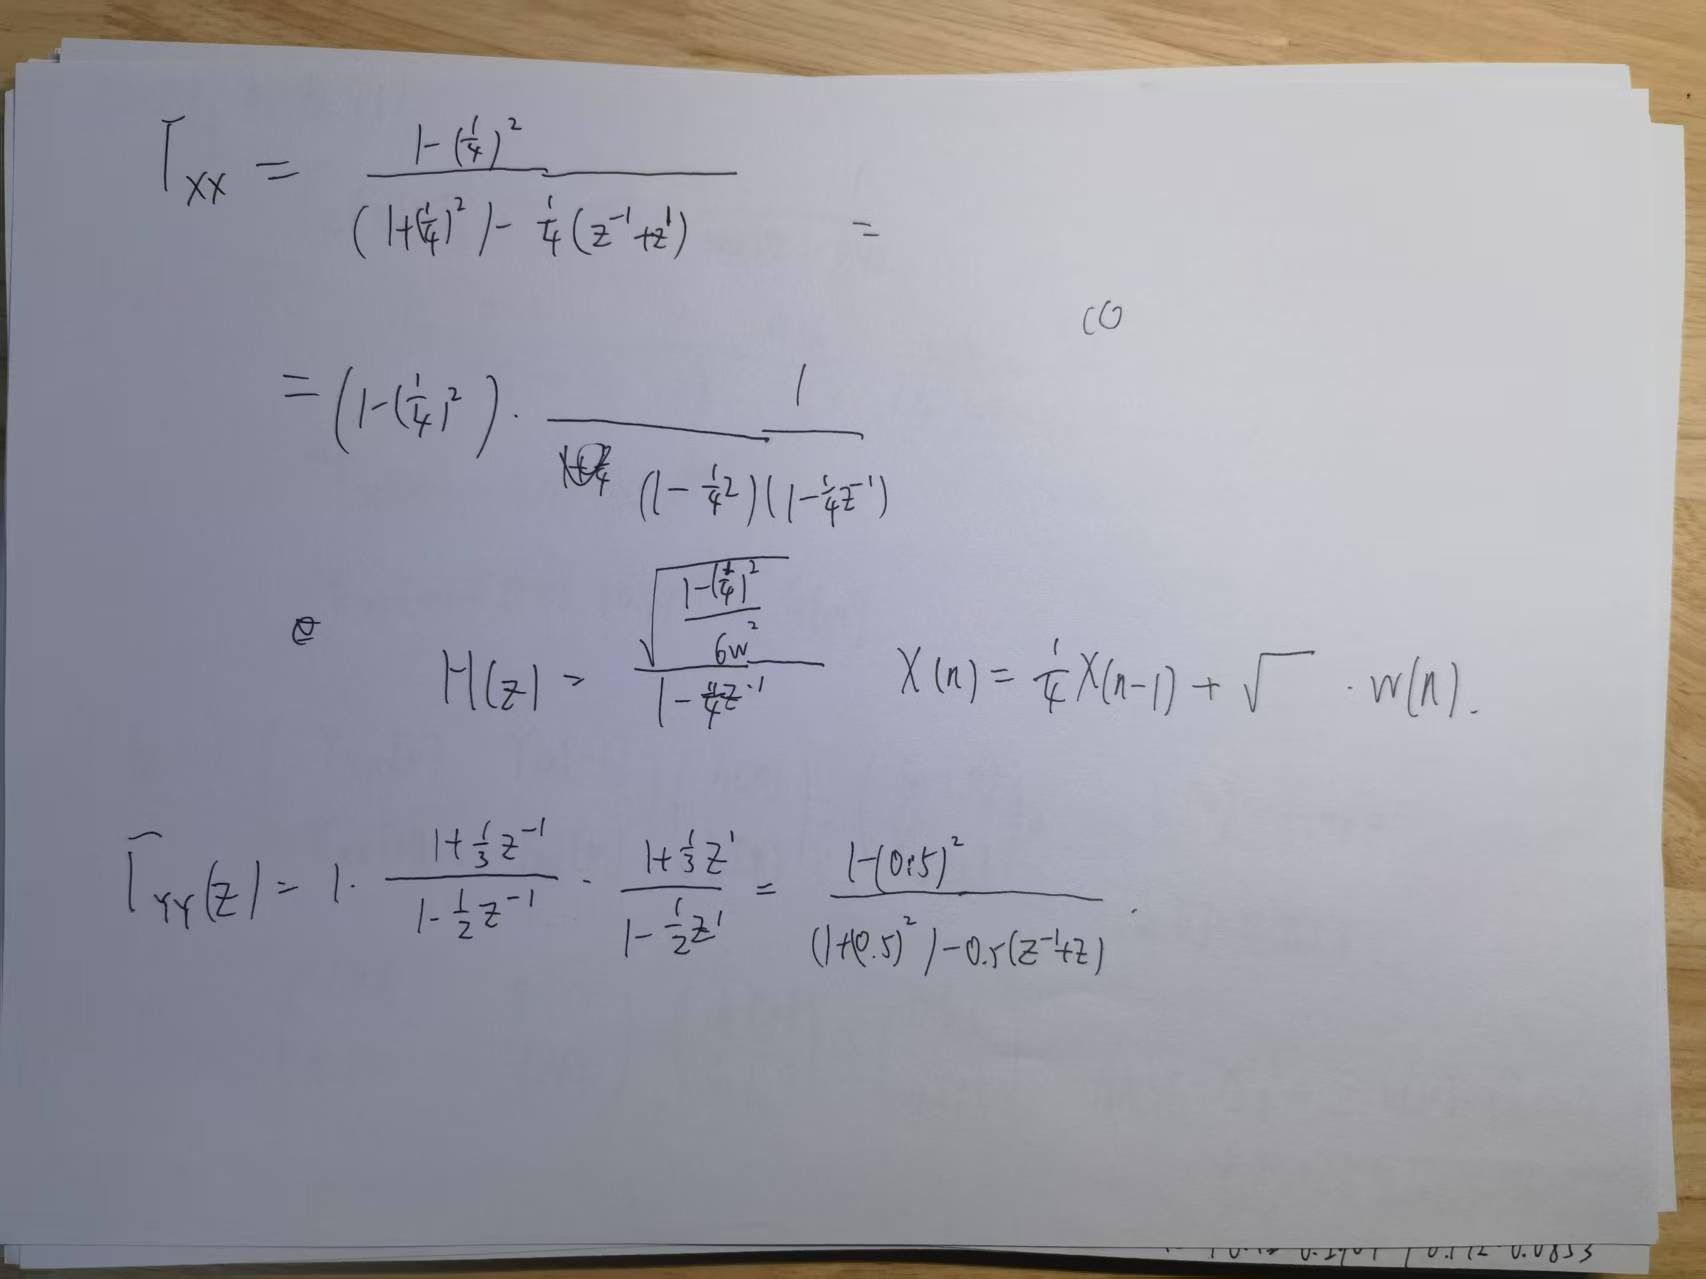 Γxx = (1-(1/4)^2) / ((1+(1/4)^2)-1/4(z^-1+z^1)) =
= (1-(1/4)^2) · 1 / ((1-1/4z)(1-1/4z^-1))
H(z) = √((1-(1/4)^2)/σw^2) / (1-1/4z^-1) X(n) = 1/4X(n-1) + √ · w(n).
ΓYY(z) = 1 · (1+1/3z^-1)/(1-1/2z^-1) · (1+1/3z^1)/(1-1/2z^1) = (1-(0.5)^2) / ((1+(0.5)^2)-0.5(z^-1+z)) .